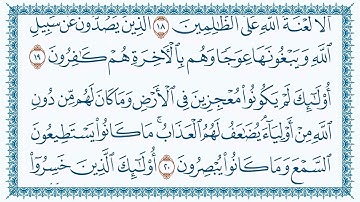 أَلَا لَعْنَةُ ٱللَّهِ عَلَى ٱلظَّٰلِمِينَ ١٨ ٱلَّذِينَ يَصُدُّونَ عَن سَبِيلِ
ٱللَّهِ وَيَبْغُونَهَا عِوَجًا وَهُم بِٱلْأَخِرَةِ هُمْ كَٰفِرُونَ ١٩
أُو۟لَٰٓئِكَ لَمْ يَكُونُوا۟ مُعْجِزِينَ فِى ٱلْأَرْضِ وَمَا كَانَ لَهُم مِّن دُونِ
ٱللَّهِ مِنْ أَوْلِيَآءَ ۘ يُضَٰعَفُ لَهُمُ ٱلْعَذَابُ ۚ مَا كَانُوا۟ يَسْتَطِيعُونَ
ٱلسَّمْعَ وَمَا كَانُوا۟ يُبْصِرُونَ ٢٠ أُو۟لَٰٓئِكَ ٱلَّذِينَ خَسِرُوٓا۟